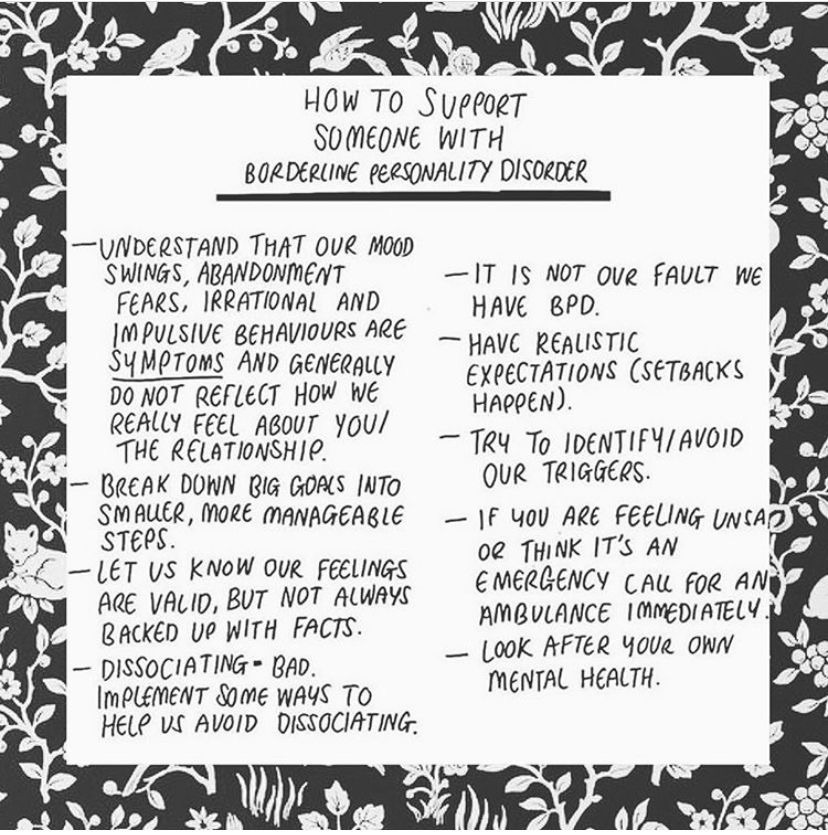 HOW TO SUPPORT
SOMEONE WITH
BORDERLINE PERSONALITY DISORDER
—UNDERSTAND THAT OUR MOOD
SWINGS, ABANDONMENT
FEARS, IRRATIONAL AND
IMPULSIVE BEHAVIOURS ARE
SYMPTOMS AND GENERALLY
DO NOT REFLECT HOW WE
REALLY FEEL ABOUT YOU/
THE RELATIONSHIP.
— BREAK DOWN BIG GOALS INTO
SMALLER, MORE MANAGEABLE
STEPS.
— LET US KNOW OUR FEELINGS
ARE VALID, BUT NOT ALWAYS
BACKED UP WITH FACTS.
— DISSOCIATING - BAD.
IMPLEMENT SOME WAYS TO
HELP US AVOID DISSOCIATING.
— IT IS NOT OUR FAULT WE
HAVE BPD.
— HAVE REALISTIC
EXPECTATIONS (SETBACKS
HAPPEN).
— TRY TO IDENTIFY/AVOID
OUR TRIGGERS.
— IF YOU ARE FEELING UNSA
OR THINK IT'S AN
EMERGENCY CALL FOR AN
AMBULANCE IMMEDIATELY.
— LOOK AFTER YOUR OWN
MENTAL HEALTH.